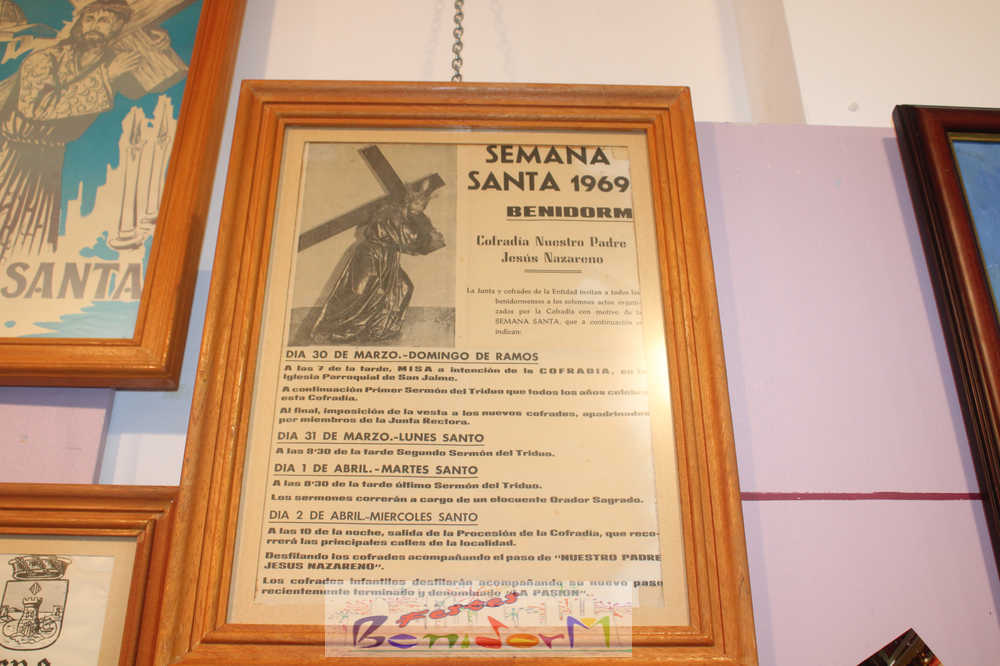 SANTA
SEMANA
SANTA 1969
BENIDORM
Cofradía Nuestro Padre
Jesús Nazareno
La Junta y cofrades de la Entidad invitan a todos los
benidormenses a los solemnes actos organi-
zados por la Cofradía con motivo de la
SEMANA SANTA, que a continuación se
indican:
DIA 30 DE MARZO.-DOMINGO DE RAMOS
A las 7 de la tarde, MISA a intención de la COFRADIA, en la
Iglesia Parroquial de San Jaime.
A continuación Primer Sermón del Triduo que todos los años celebra
esta Cofradía.
Al final, imposición de la vesta a los nuevos cofrades, apadrinados
por miembros de la Junta Rectora.
DIA 31 DE MARZO.-LUNES SANTO
A las 8'30 de la tarde Segundo Sermón del Triduo.
DIA 1 DE ABRIL.-MARTES SANTO
A las 8'30 de la tarde último Sermón del Triduo.
Los sermones correrán a cargo de un elocuente Orador Sagrado.
DIA 2 DE ABRIL.-MIERCOLES SANTO
A las 10 de la noche, salida de la Procesión de la Cofradía, que reco-
rrerá las principales calles de la localidad.
Desfilando los cofrades acompañando el paso de "NUESTRO PADRE
JESUS NAZARENO".
Los cofrades infantiles desfilarán acompañando su nuevo paso
recientemente terminado y denominado "LA PASION"
Festes
BenidorM